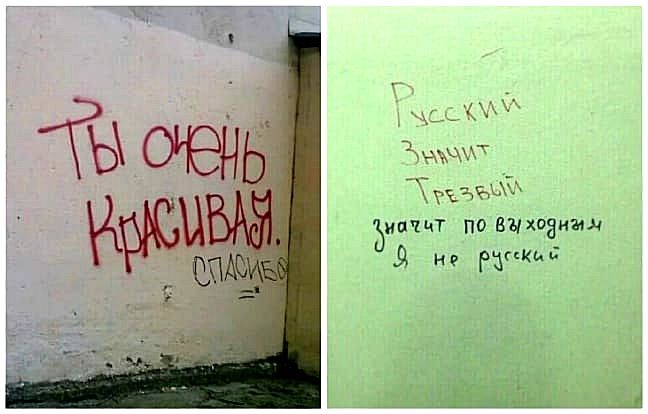 Ты очень
красивая.
спасибо
Русский
Значит
Трезвый
значит по выходным
я не русский